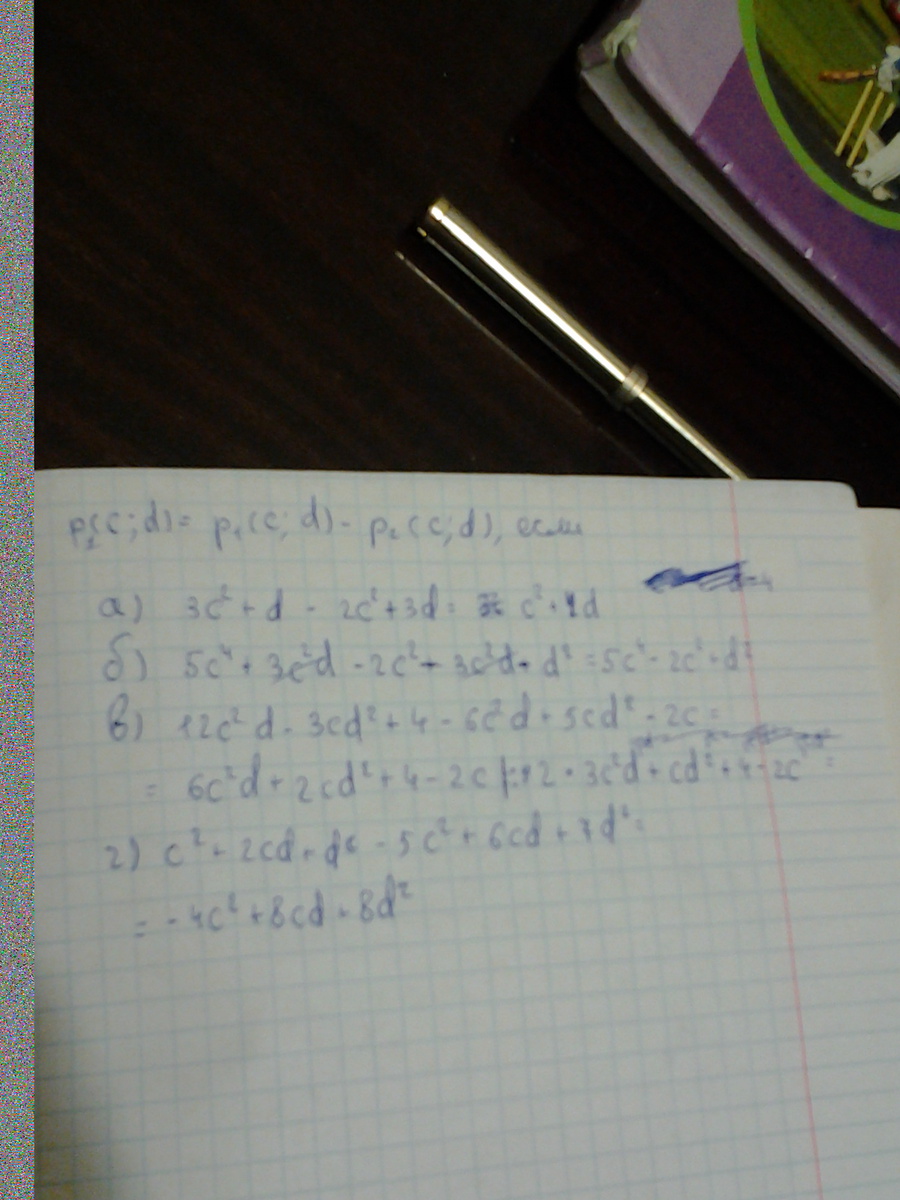 p(c; d) = p₁(c; d) - p₂(c; d), если
а) 3c² + d - 2c² + 3d = c² + 4d
б) 5c⁴ + 3c²d - 2c² + 3c²d + d² = 5c⁴ - 2c² + d²
в) 12c²d - 3cd² + 4 - 6c²d + 5cd² - 2c =
= 6c²d + 2cd² + 4 - 2c |:2 = 3c²d + cd² + 4 - 2c =
г) c² + 2cd + d² - 5c² + 6cd + 7d² =
= -4c² + 8cd + 8d²